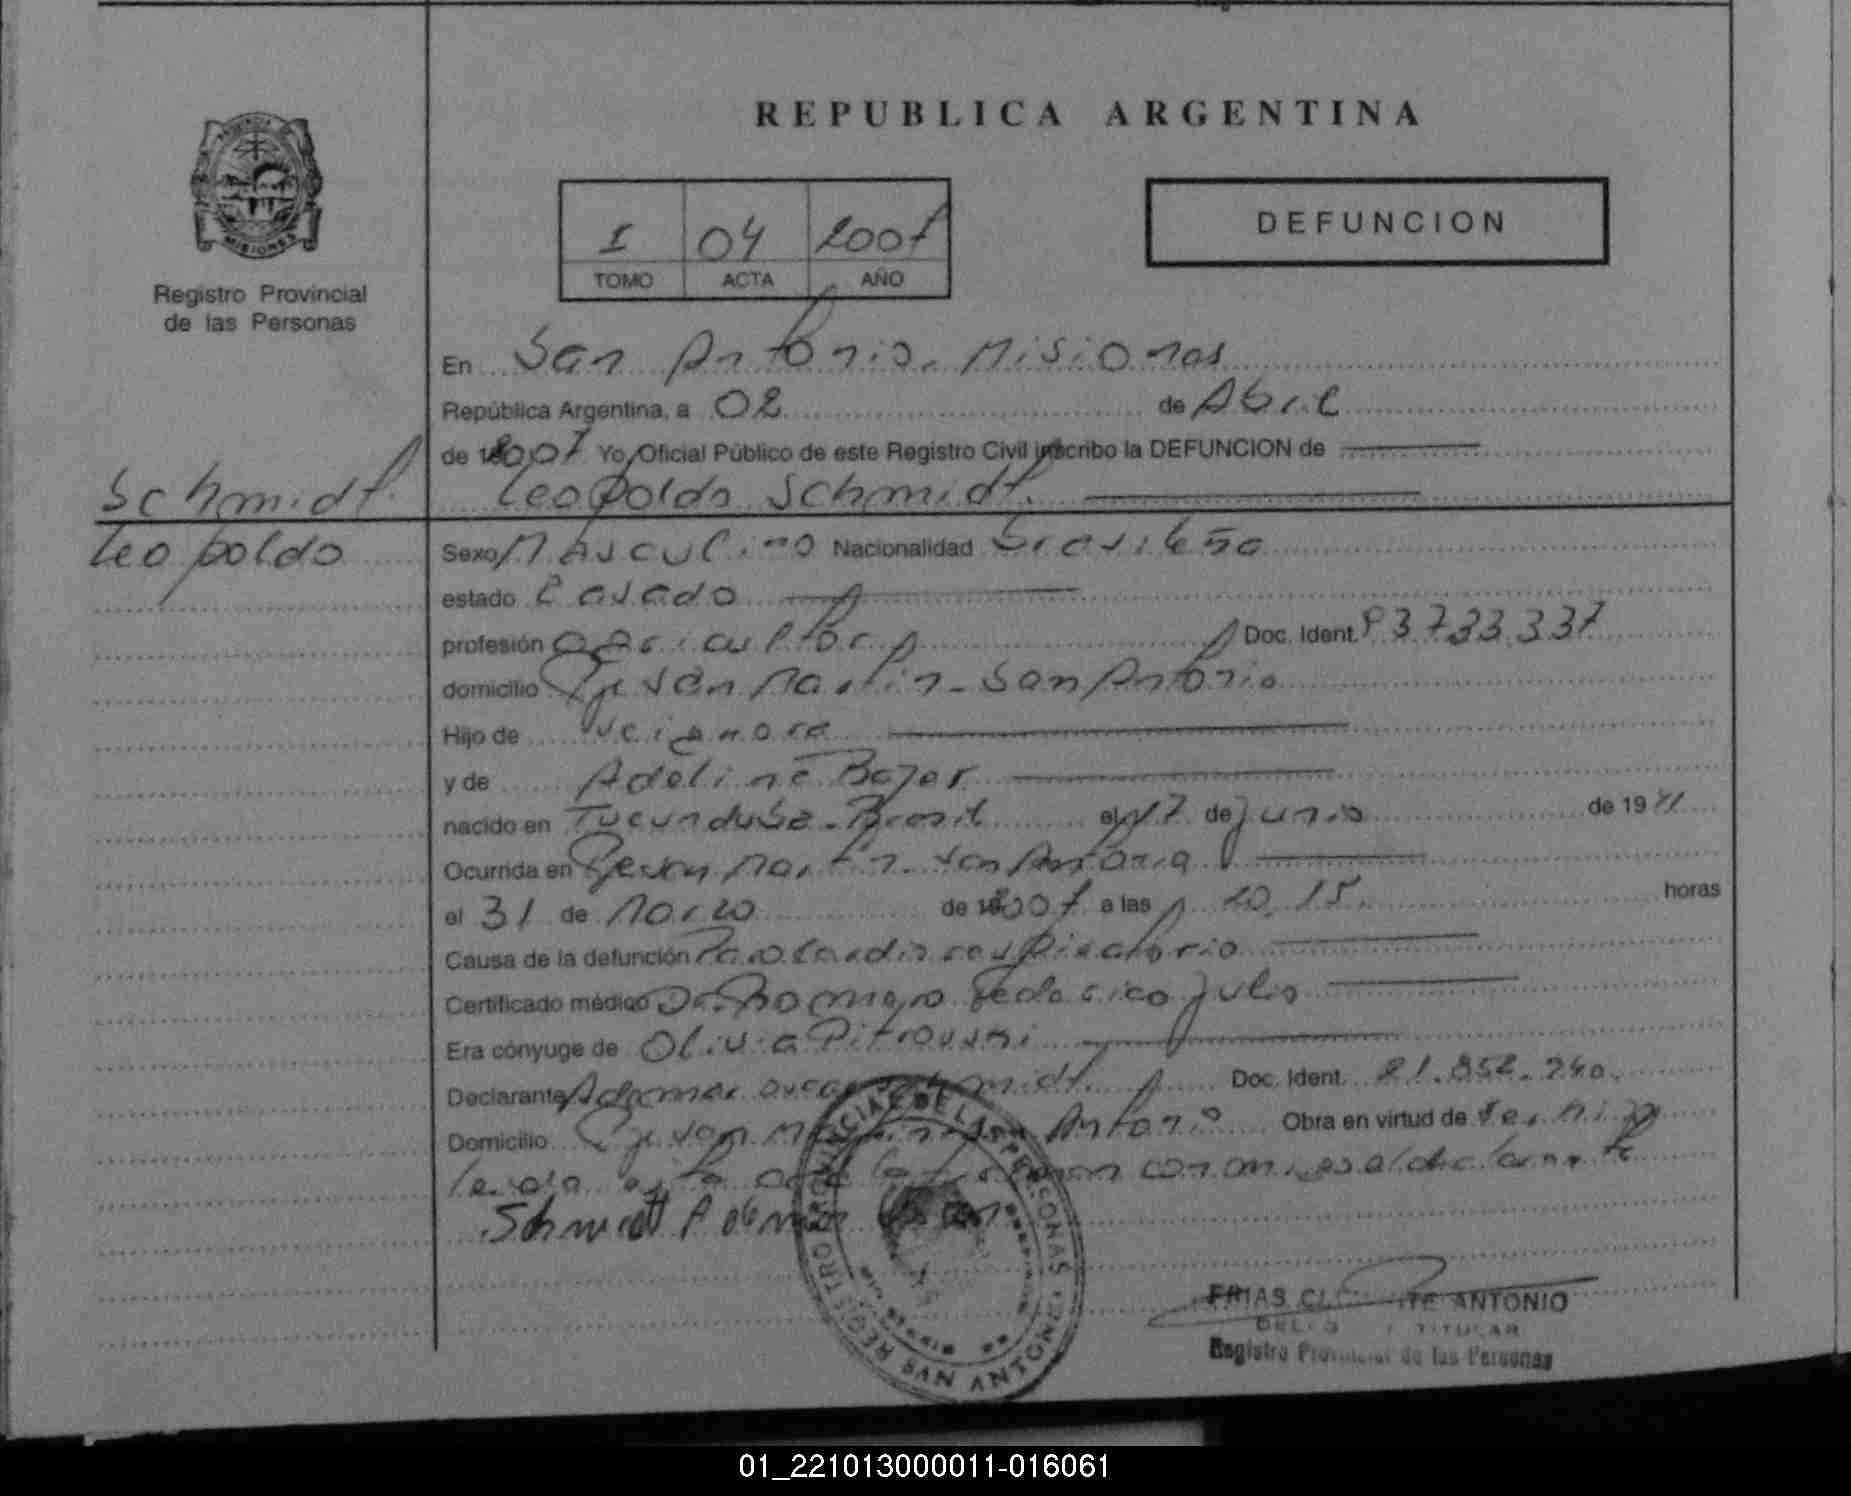 REPUBLICA ARGENTINA
PROVINCIA
MISIONES
Registro Provincial
de las Personas
I 04 2007
TOMO ACTA AÑO
DEFUNCION
En San Antonio. Misiones
República Argentina, a 02 de Abril
de 2007 Yo, Oficial Público de este Registro Civil inscribo la DEFUNCION de
Leopoldo Schmidt.
Schmidt.
Leopoldo
Sexo Masculino Nacionalidad Brasileña
estado Casado
profesión agricultor Doc. Ident. 93733.337
domicilio Pje San Martin - San Antonio
Hijo de
y de Adeline
nacido en Brasil el 17 de Junio de 1941
Ocurrida en Pje San Martin. San Antonio
el 31 de Marzo de 2007 a las 10.15. horas
Causa de la defunción Paro Cardio respiratorio
Certificado médico Dr. Federico Julio
Era cónyuge de Olivia
Declarante Ademar Oscar Schmidt. Doc. Ident. 21.852.240.
Domicilio Pje San Martin San Antonio Obra en virtud de Ser hijo
leida esta acta la firman conmigo el declarante
Schmidt Ademar
REGISTRO PROVINCIAL DE LAS PERSONAS
SAN ANTONIO
FRIAS ANTONIO
TITULAR
Registro Provincial de las Personas
01_221013000011-016061